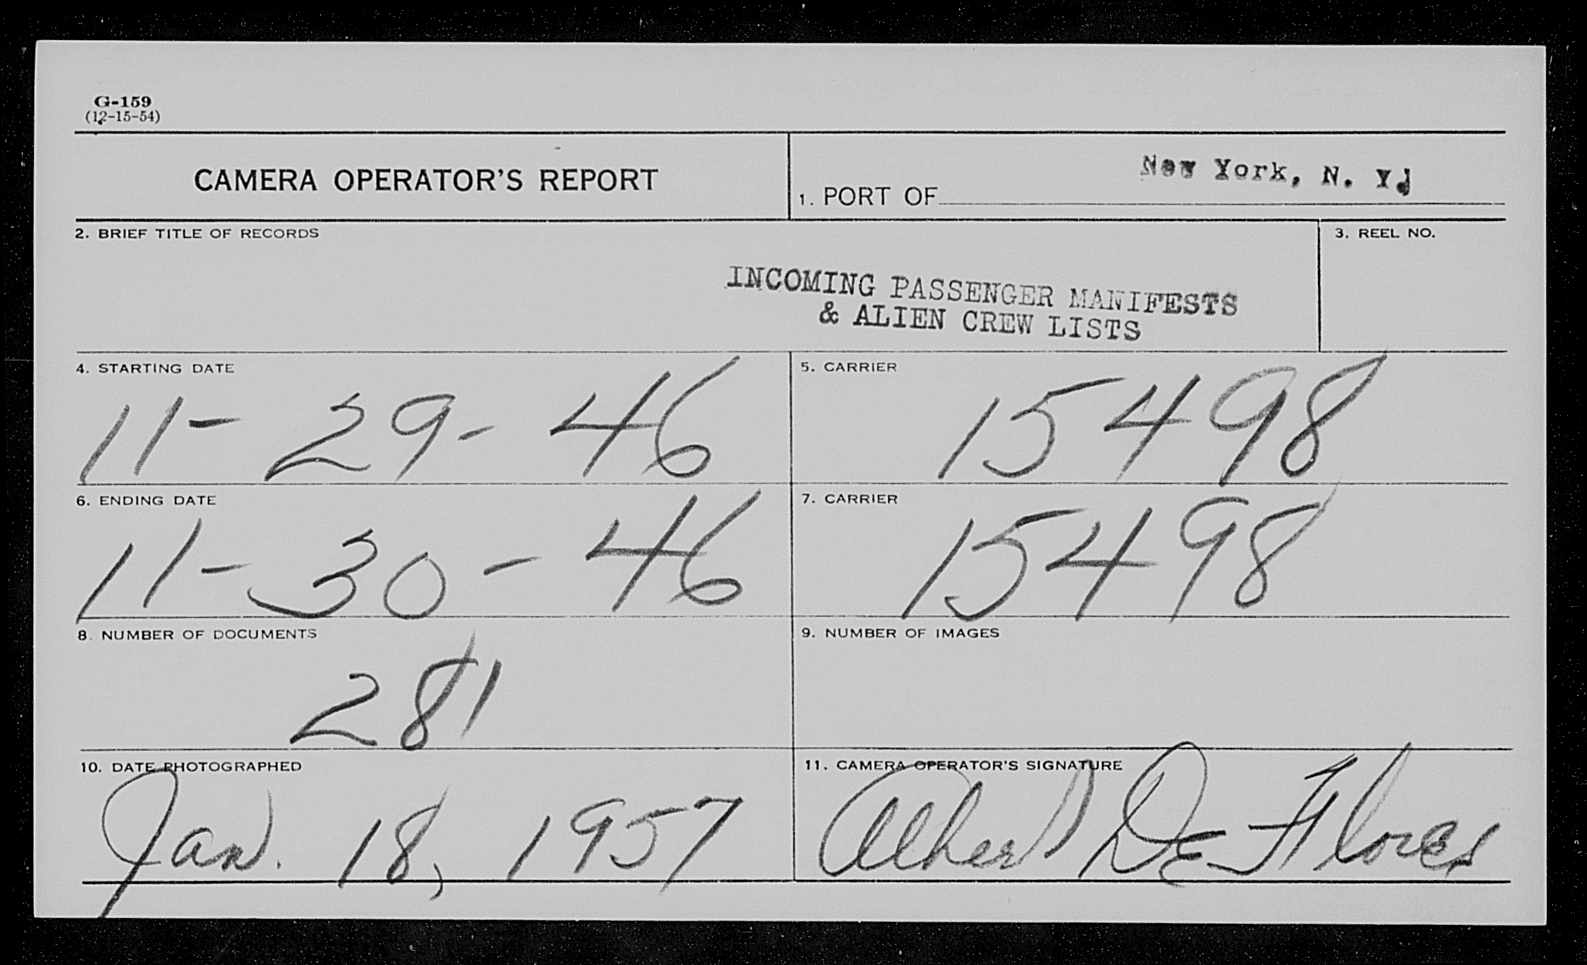 G-159
(12-15-54)
CAMERA OPERATOR'S REPORT
1. PORT OF New York, N. Y.
2. BRIEF TITLE OF RECORDS
3. REEL NO.
INCOMING PASSENGER MANIFESTS
& ALIEN CREW LISTS
4. STARTING DATE
11-29-46
5. CARRIER
15498
6. ENDING DATE
11-30-46
7. CARRIER
15498
8. NUMBER OF DOCUMENTS
281
9. NUMBER OF IMAGES
10. DATE PHOTOGRAPHED
Jan. 18, 1957
11. CAMERA OPERATOR'S SIGNATURE
Albert De Flores